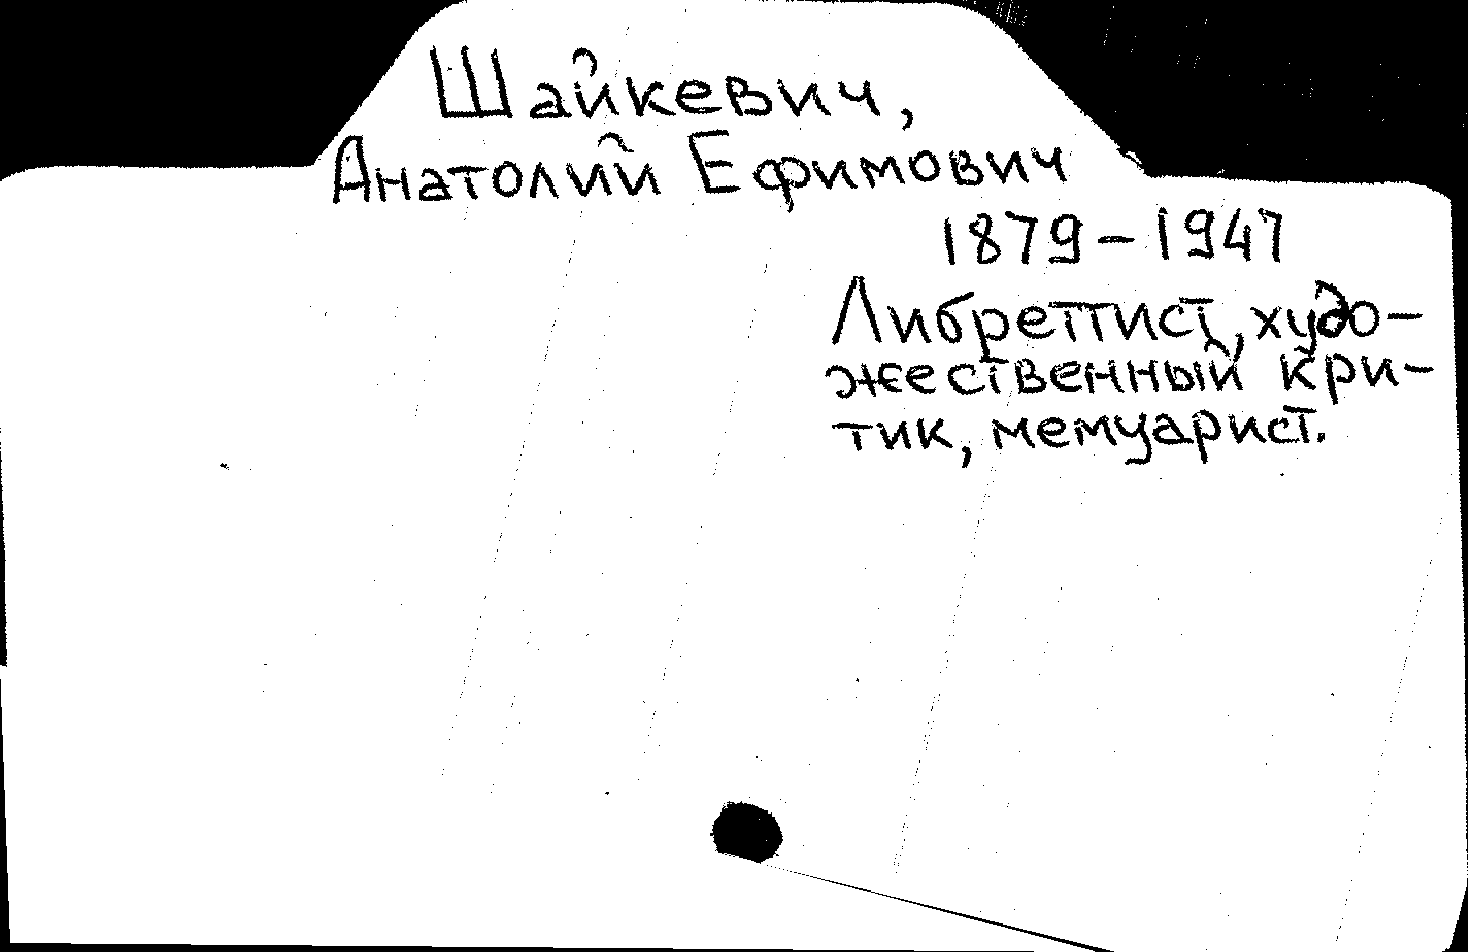 Шайкевич,
Анатолий Ефимович
1879-1947
Либреттист, худо-
жественный кри-
тик, мемуарист.